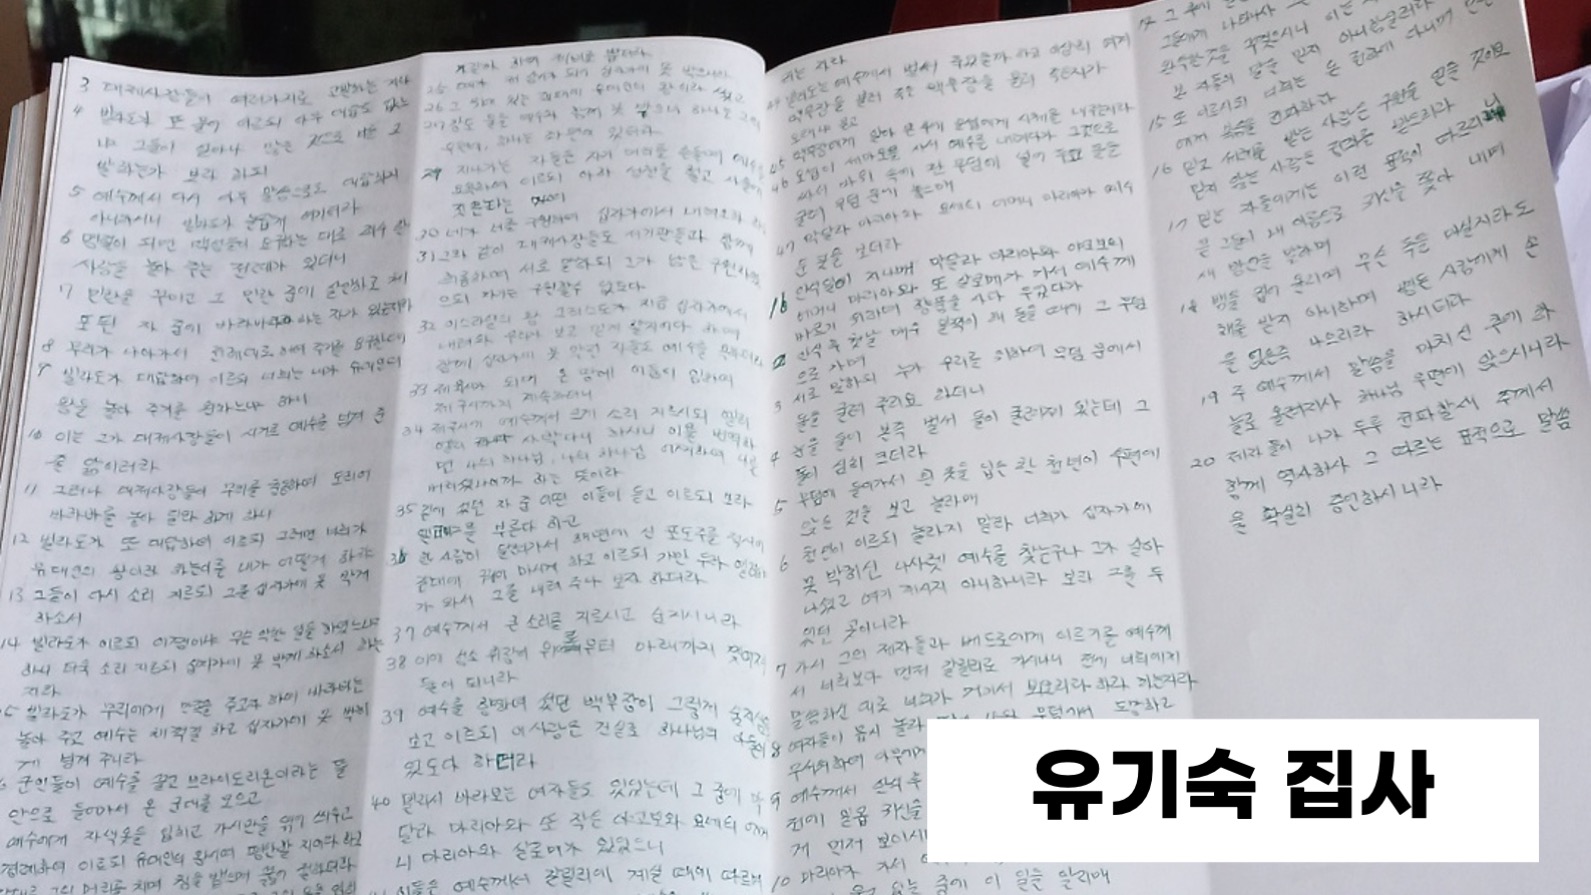 3 대제사장들이 여러가지로 고발하는지라
4 빌라도가 또 물어 이르되 아무 대답도 없느
냐 그들이 얼마나 많은 것으로 너를 고
발하는가 보라 하되
5 예수께서 다시 아무 말씀으로도 대답하지
아니하시니 빌라도가 놀랍게 여기더라
6 명절이 되면 백성들이 요구하는 대로 죄수 한
사람을 놓아 주는 전례가 있더니
7 민란을 꾸미고 그 민란 중에 살인하고 체
포된 자 중에 바라바라 하는 자가 있는지라
8 무리가 나아가서 전례대로 하여 주기를 요구한대
9 빌라도가 대답하여 이르되 너희는 내가 유대인의
왕을 놓아 주기를 원하느냐 하니
10 이는 그가 대제사장들이 시기로 예수를 넘겨 준
줄 앎이러라
11 그러나 대제사장들이 무리를 충동하여 도리어
바라바를 놓아 달라 하게 하니
12 빌라도가 또 대답하여 이르되 그러면 너희가
유대인의 왕이라 하는 이를 내가 어떻게 하랴
13 그들이 다시 소리 지르되 그를 십자가에 못 박게
하소서
14 빌라도가 이르되 어찜이냐 무슨 악한 일을 하였느냐
하니 더욱 소리 지르되 십자가에 못 박게 하소서 하는
지라
빌라도가 무리에게 만족을 주고자 하여 바라바는
놓아 주고 예수는 채찍질 하고 십자가에 못 박히
게 넘겨 주니라
군인들이 예수를 끌고 브라이도리온이라는 뜰
안으로 들어가서 온 군대를 모으고
예수에게 자색옷을 입히고 가시관을 엮어 씌우고
경례하여 이르되 유대인의 왕이여 평안할 지어다 하고
26 그 위에 있는 죄패에 유대인의 왕이라 썼고
27 강도 둘을 예수와 함께 못 박으니 하나는 그의
우편에, 하나는 좌편에 있더라
29 지나가는 자들은 자기 머리를 흔들며 예수를
모욕하여 이르되 아하 성전을 헐고 사흘에
짓는다는 자여
30 네가 너를 구원하여 십자가에서 내려오라 하고
31 그와 같이 대제사장들도 서기관들과 함께
희롱하며 서로 말하되 그가 남은 구원하였
으되 자기는 구원할수 없도다
32 이스라엘의 왕 그리스도가 지금 십자가에서
내려와 우리가 보고 믿게 할지어다 하며
함께 십자가에 못 박힌 자들도 예수를 욕하더라
33 제육시가 되매 온 땅에 어둠이 임하여
제구시까지 계속하더니
34 제구시에 예수께서 크게 소리 지르시되 엘리
엘리 라마 사박다니 하시니 이를 번역하
면 나의 하나님, 나의 하나님 어찌하여 나를
버리셨나이까 하는 뜻이라
35 곁에 섰던 자 중 어떤 이들이 듣고 이르되 보라
엘리야를 부른다 하고
36 한 사람이 달려가서 해면에 신 포도주를 적시어
갈대에 꿰어 마시게 하고 이르되 가만 두라 엘리야
가 와서 그를 내려 주나 보자 하더라
37 예수께서 큰 소리를 지르시고 숨지시니라
38 이에 성소 휘장이 위로부터 아래까지 찢어져
둘이 되니라
39 예수를 향하여 섰던 백부장이 그렇게 숨지심을
보고 이르되 이 사람은 진실로 하나님의 아들이
었도다 하더라
40 멀리서 바라보는 여자들도 있었는데 그 중에 막
달라 마리아와 또 작은 야고보와 요세의 어머
니 마리아와 살로메가 있었으니
이들은 예수께서 갈릴리에 계실 때에 따르며
빌라도는 예수께서 벌써 죽었을까 하고 이상히 여겨
백부장을 불러 죽은 지가
오래냐 묻고
45 백부장에게 알아 본 후에 요셉에게 시체를 내주는지라
46 요셉이 세마포를 사서 예수를 내려다가 그것으로
싸서 바위 속에 판 무덤에 넣어 두고 돌을
굴려 무덤 문에 놓으매
47 막달라 마리아와 요세의 어머니 마리아가 예수
둔 곳을 보더라
16 안식일이 지나매 막달라 마리아와 야고보의
어머니 마리아와 또 살로메가 가서 예수께
바르기 위하여 향품을 사다 두었다가
2 안식 후 첫날 매우 일찍이 해 돋을 때에 그 무덤
으로 가며
3 서로 말하되 누가 우리를 위하여 무덤 문에서
돌을 굴려 주리요 하더니
4 눈을 들어 본즉 벌써 돌이 굴려져 있는데 그
돌이 심히 크더라
5 무덤에 들어가서 흰 옷을 입은 한 청년이 우편에
앉은 것을 보고 놀라매
6 청년이 이르되 놀라지 말라 너희가 십자가에
못 박히신 나사렛 예수를 찾는구나 그가 살아
나셨고 여기 계시지 아니하니라 보라 그를 두
었던 곳이니라
7 가서 그의 제자들과 베드로에게 이르기를 예수께
서 너희보다 먼저 갈릴리로 가시나니 전에 너희에게
말씀하신 대로 너희가 거기서 뵈오리라 하라 하는지라
8 여자들이 몹시 놀라 떨며 나와 무덤에서 도망하고
무서워하여 아무에게
9 예수께서 안식 후
전에 일곱 귀신을
게 먼저 보이시
10 마리아가 가서
중에 이 일을 알리매
완악한 것을 꾸짖으시니 이는
본 자들의 말을 믿지 아니함일러라
15 또 이르시되 너희는 온 천하에 다니며
에게 복음을 전파하라
16 믿고 세례를 받는 사람은 구원을 얻을 것이요
믿지 않는 사람은 정죄를 받으리라
17 믿는 자들에게는 이런 표적이 따르리니
곧 그들이 내 이름으로 귀신을 쫓아 내며
새 방언을 말하며
18 뱀을 집어 올리며 무슨 독을 마실지라도
해를 받지 아니하며 병든 사람에게 손
을 얹은즉 나으리라 하시더라
19 주 예수께서 말씀을 마치신 후에 하
늘로 올려지사 하나님 우편에 앉으시니라
20 제자들이 나가 두루 전파할새 주께서
함께 역사하사 그 따르는 표적으로 말씀
을 확실히 증언하시니라
유기숙 집사